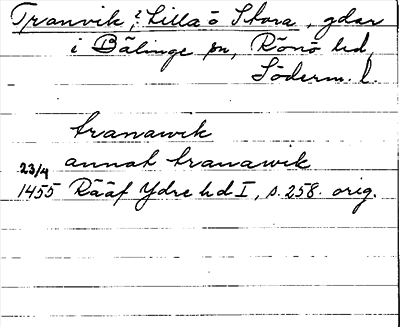 Tranvik, ? Lilla o Stora, gdar
i Bälinge sn, Rönö hd,
Söderm. l.
tranawik
annat tranawik
23/4
1455 Rääf Ydre hd I, s. 258. orig.